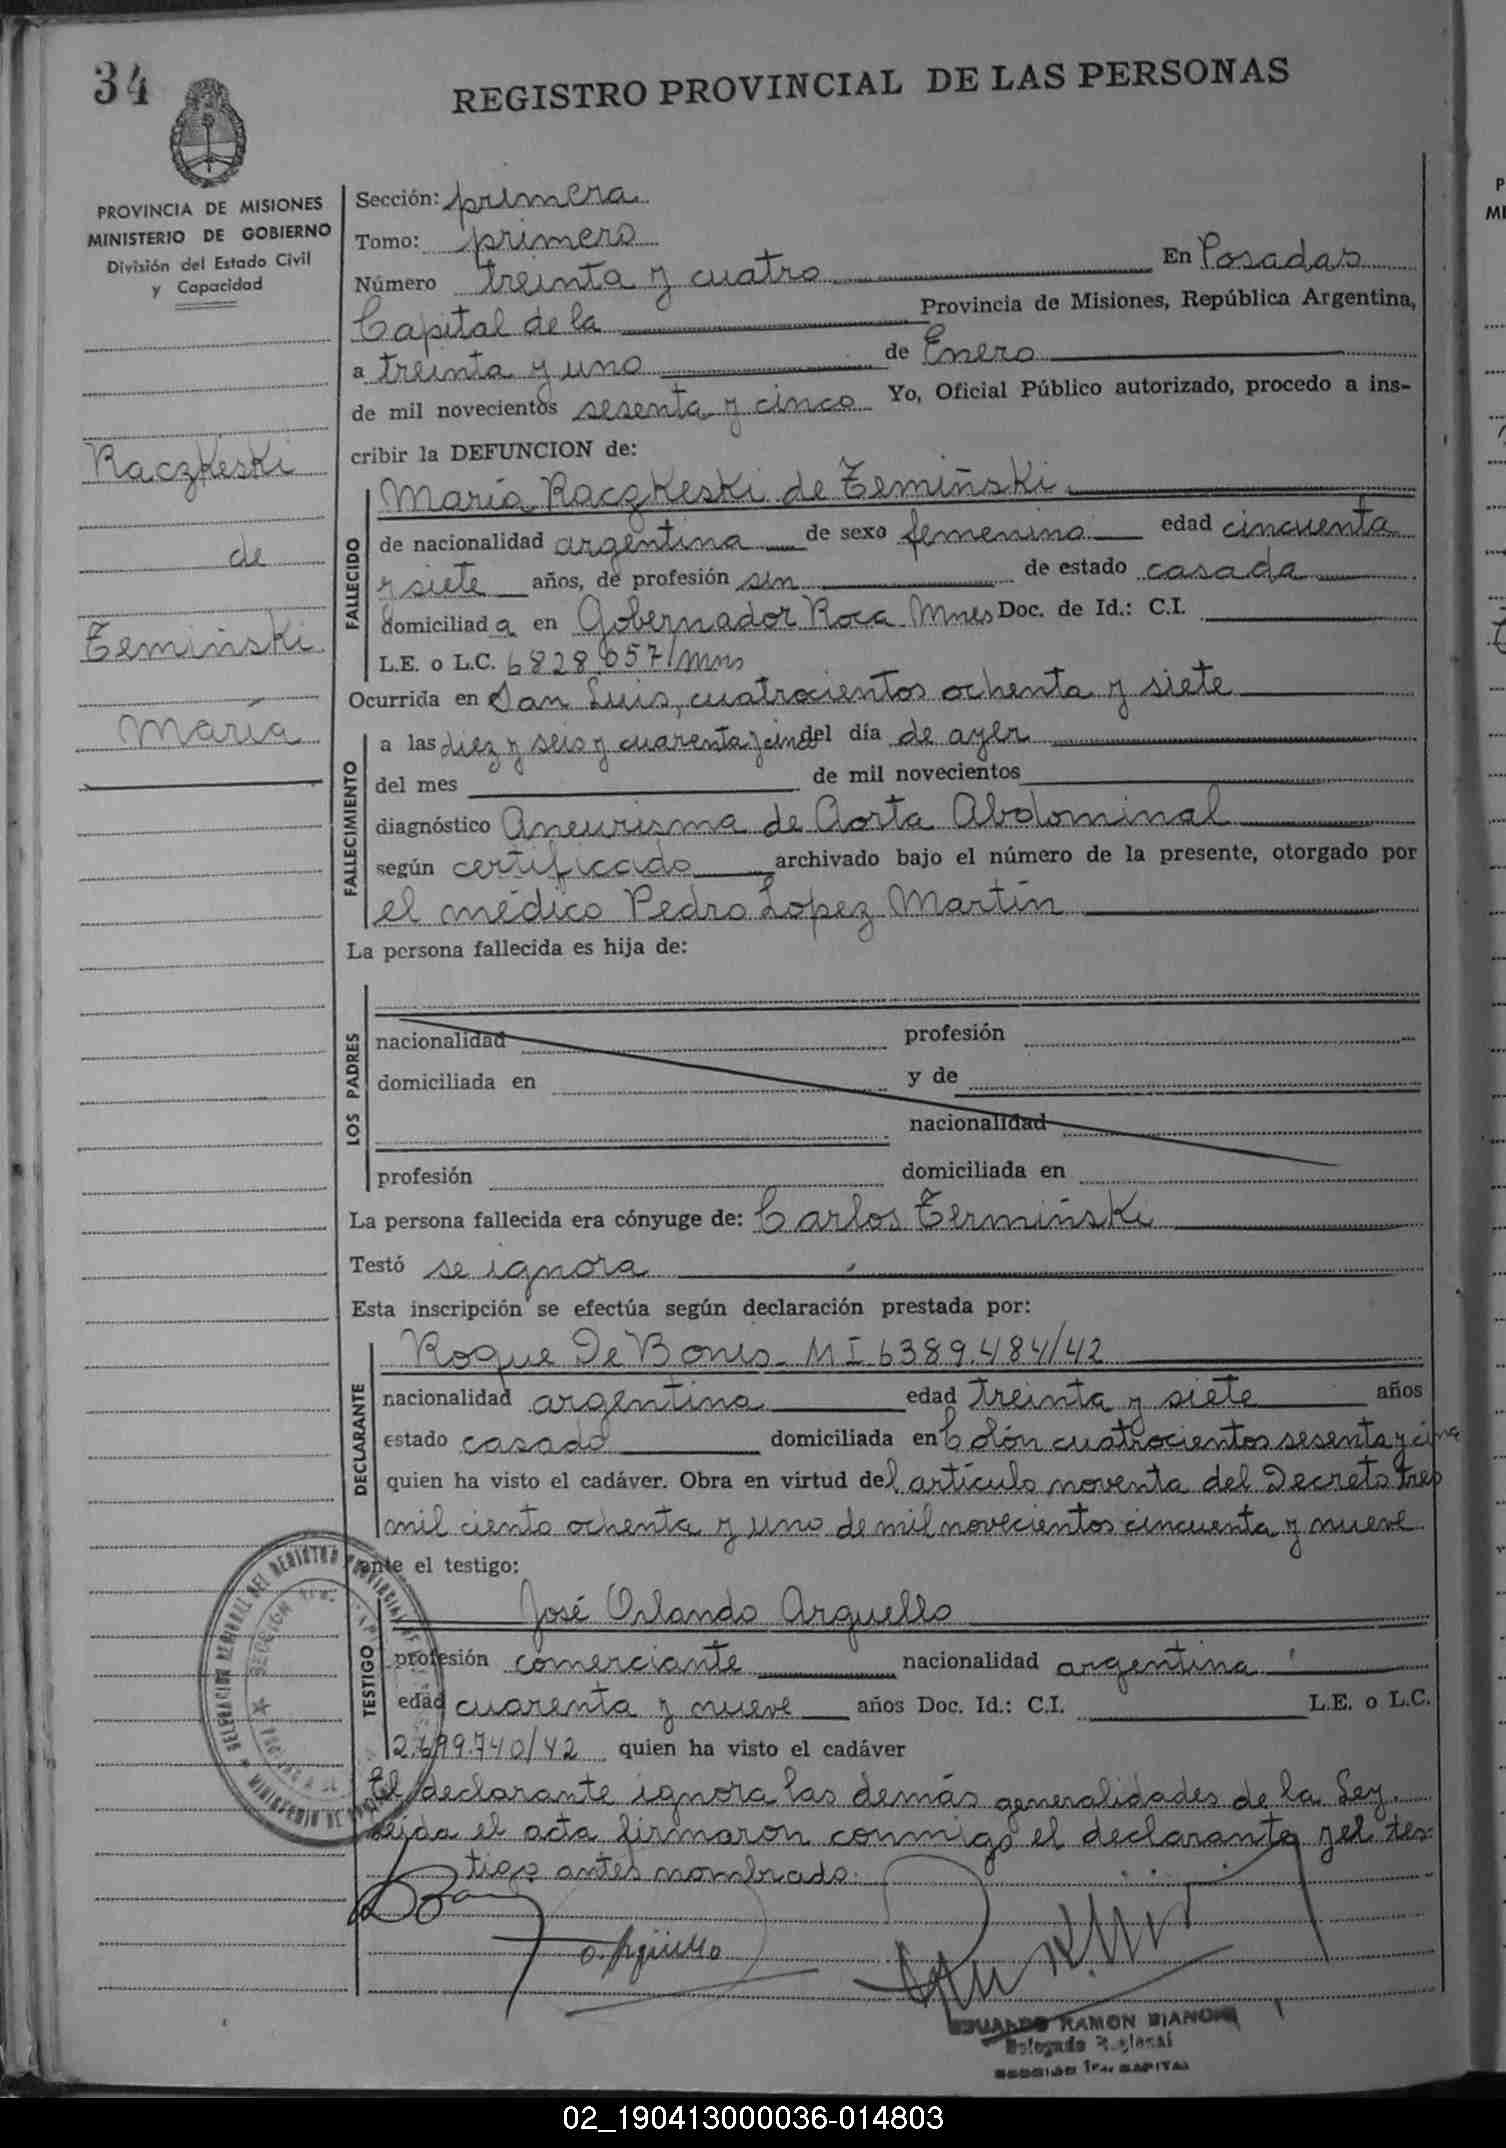 34
REGISTRO PROVINCIAL DE LAS PERSONAS
PROVINCIA DE MISIONES
MINISTERIO DE GOBIERNO
División del Estado Civil
y Capacidad
Raczkeski
de
Zemiñski
María
Sección: primera
Tomo: primero
Número treinta y cuatro En Posadas
Capital de la Provincia de Misiones, República Argentina,
a treinta y uno de Enero
de mil novecientos sesenta y cinco Yo, Oficial Público autorizado, procedo a ins-
cribir la DEFUNCION de:
FALLECIDO
María Raczkeski de Zemiñski
de nacionalidad argentina de sexo femenino edad cincuenta
y siete años, de profesión sin de estado casada
domiciliada en Gobernador Roca Mnes Doc. de Id.: C.I.
L.E. o L.C. 6828.057/Mns
Ocurrida en San Luis, cuatrocientos ochenta y siete
FALLECIMIENTO
a las diez y seis y cuarenta y cinco del día de ayer
del mes de mil novecientos
diagnóstico Aneurisma de Aorta Abdominal
según certificado archivado bajo el número de la presente, otorgado por
el médico Pedro López Martín
La persona fallecida es hija de:
LOS PADRES
nacionalidad profesión
domiciliada en y de
nacionalidad
profesión domiciliada en
La persona fallecida era cónyuge de: Carlos Zermiñski
Testó se ignora
Esta inscripción se efectúa según declaración prestada por:
DECLARANTE
Roque De Bonis MI 6389.484/42
nacionalidad argentina edad treinta y siete años
estado casado domiciliada en Colón cuatrocientos sesenta y cinco
quien ha visto el cadáver. Obra en virtud del artículo noventa del Decreto tres
mil ciento ochenta y uno de mil novecientos cincuenta y nueve
ante el testigo:
TESTIGO
José Orlando Arguello
profesión comerciante nacionalidad argentina
edad cuarenta y nueve años Doc. Id.: C.I. L.E. o L.C.
2.699.740/42 quien ha visto el cadáver
El declarante ignora las demás generalidades de la Ley.
Leída el acta firmaron conmigo el declarante y el tes-
tigo antes nombrado.
O. Argüello
EDUARDO RAMON BIANCHI
Delegado Regional
SECCION 1ra. CAPITAL
02_190413000036-014803